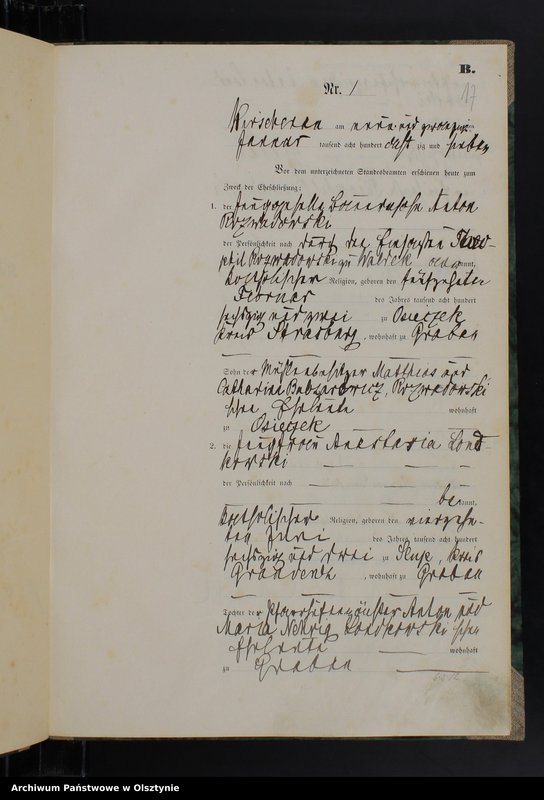 B.
Nr. 1
17
am neun und zwanzigsten
Januar tausend acht hundert acht zig und sieben
Vor dem unterzeichneten Standesbeamten erschienen heute zum
Zweck der Eheschließung:
1. der Bauernsohn Anton
Rozwadowski
der Persönlichkeit nach durch den Theo-
phil Rozwadowski zu kannt,
katholischer Religion, geboren den fünfzehnten
Februar des Jahres tausend acht hundert
sechszig und zwei zu Osieczek
Kreis Strasburg, wohnhaft zu Grabau
Sohn der Mühlenbesitzer Matthias und
Catharina Rozwadowski
schen Eheleute wohnhaft
zu Osieczek
2. die Jungfrau Anastasia Lond-
kowski
der Persönlichkeit nach
be kannt,
katholischer Religion, geboren den vierzehn-
ten Juni des Jahres tausend acht hundert
sechszig und drei zu Slup, Kreis
Graudenz, wohnhaft zu Grabau
Tochter der Anton und
Maria Nehrig Londkowski schen
Eheleute wohnhaft
zu Grabau
Archiwum Państwowe w Olsztynie